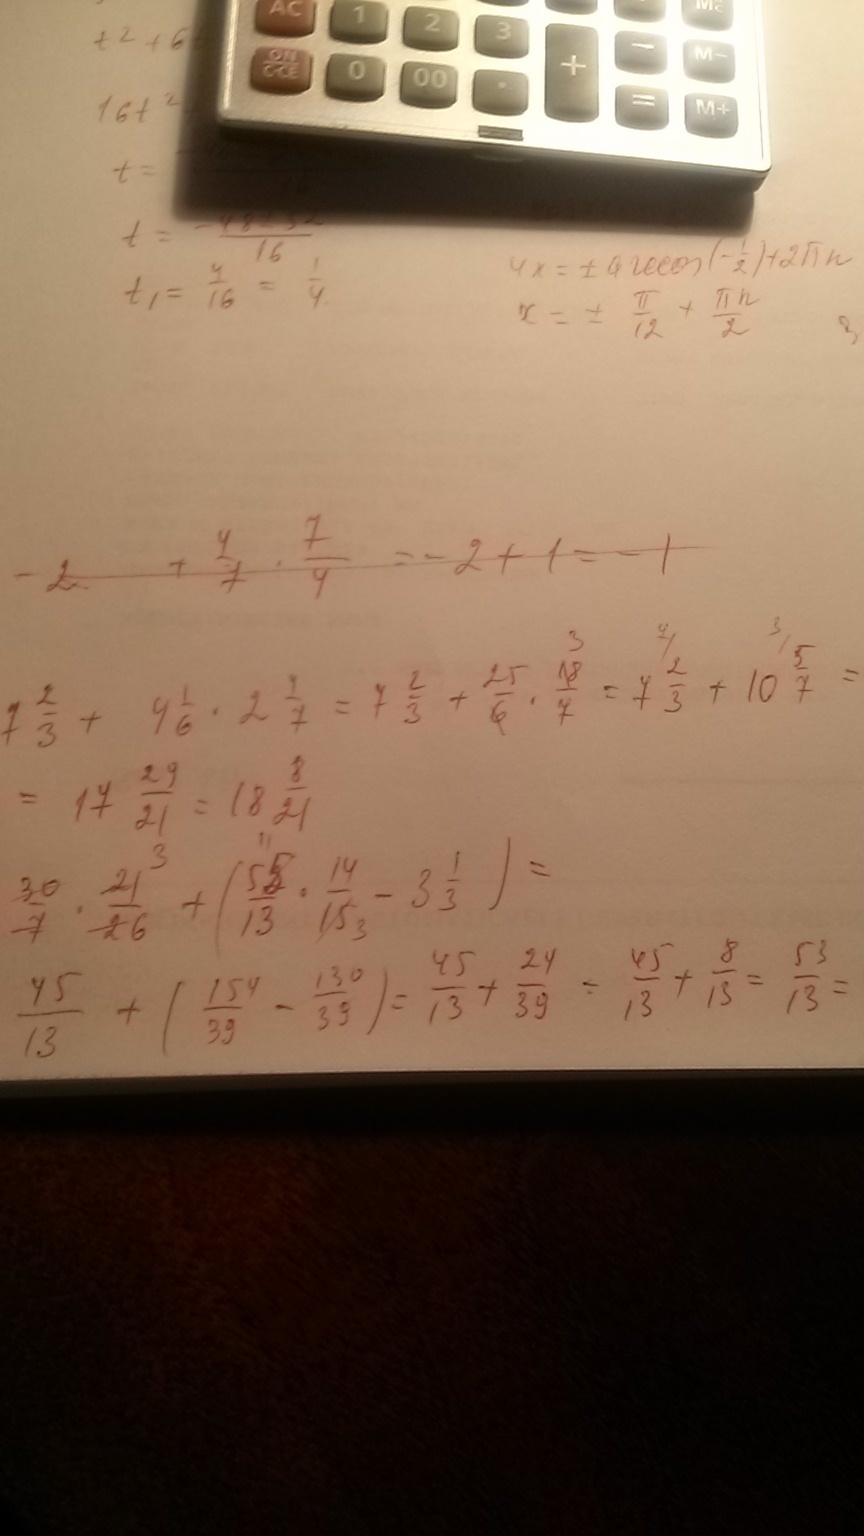 AC 1 2 3 + − M−
ON C·CE 0 00 · = M+
t² + 6
16t²
t =
t = 16
t₁ = 4/16 = 1/4
4x = ± arccos(-1/2) + 2πn
x = ± π/12 + πn/2
-2 + 4/7 · 7/4 = -2 + 1 = -1
7 2/3 + 4 1/6 · 2 4/7 = 7 2/3 + 25/6 · 18/7 = 7 2/3 + 10 5/7 =
= 17 29/21 = 18 8/21
30/7 · 21/26 + (55/13 · 14/15 - 3 1/3) =
45/13 + (154/39 - 130/39) = 45/13 + 24/39 = 45/13 + 8/13 = 53/13 =